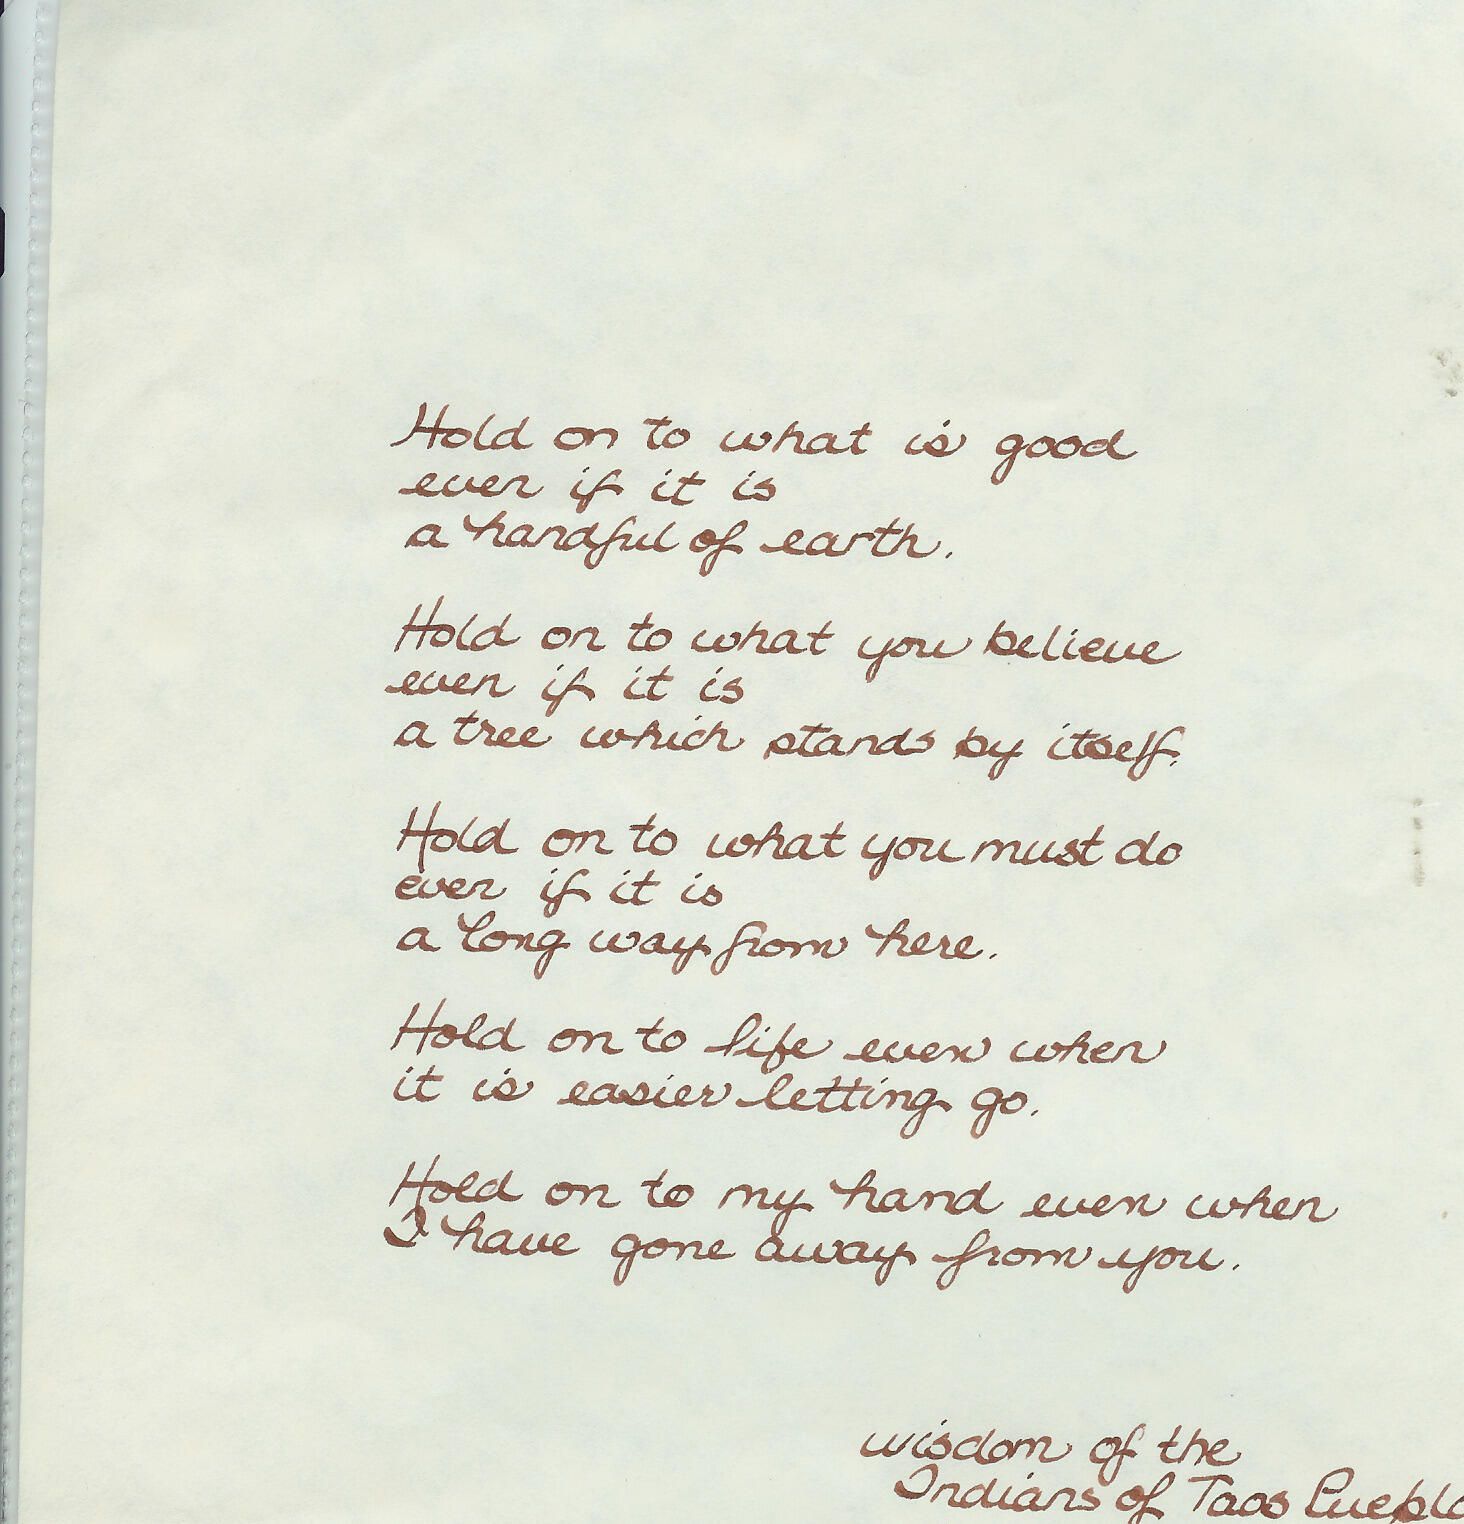 Hold on to what is good
even if it is
a handful of earth.
Hold on to what you believe
even if it is
a tree which stands by itself.
Hold on to what you must do
even if it is
a long way from here.
Hold on to life even when
it is easier letting go.
Hold on to my hand even when
I have gone away from you.
wisdom of the
Indians of Taos Pueblo